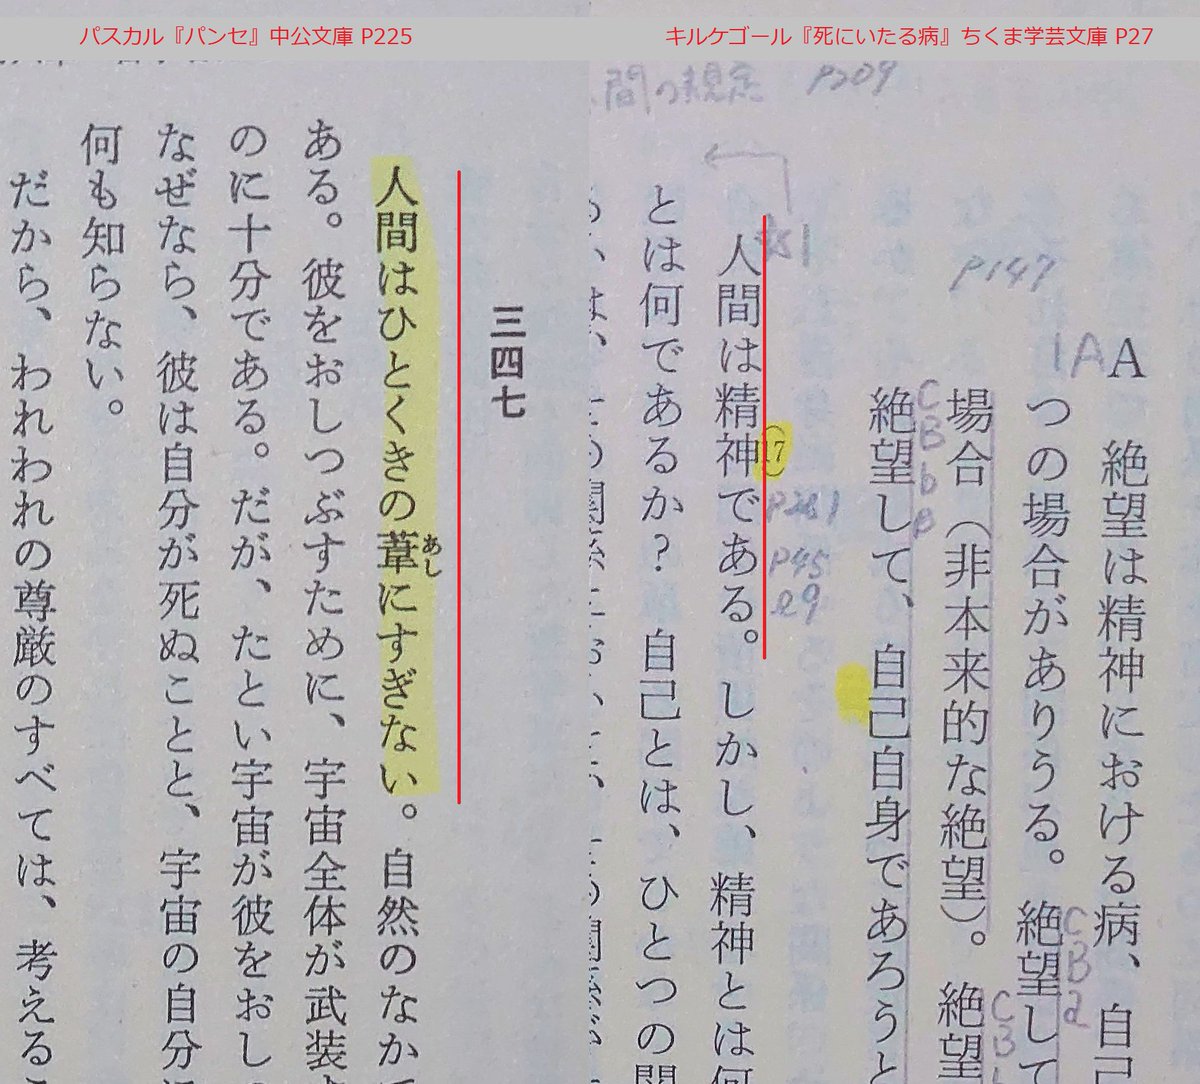 パスカル『パンセ』中公文庫 P225
三四七
人間はひとくきの葦にすぎない。自然のなか
あし
ある。彼をおしつぶすために、宇宙全体が武装
のに十分である。だが、たとい宇宙が彼をおし
なぜなら、彼は自分が死ぬことと、宇宙の自分
何も知らない。
だから、われわれの尊厳のすべては、考える
キルケゴール『死にいたる病』ちくま学芸文庫 P27
間の規定 P209
P147
1A
A 絶望は精神における病、自己
つの場合がありうる。絶望して
CBa
場合（非本来的な絶望）。絶望
CBbB
絶望して、自己自身であろうと
人間は精神である。しかし、精神とは何
(17)
P281
P45
e9
とは何であるか？ 自己とは、ひとつの関